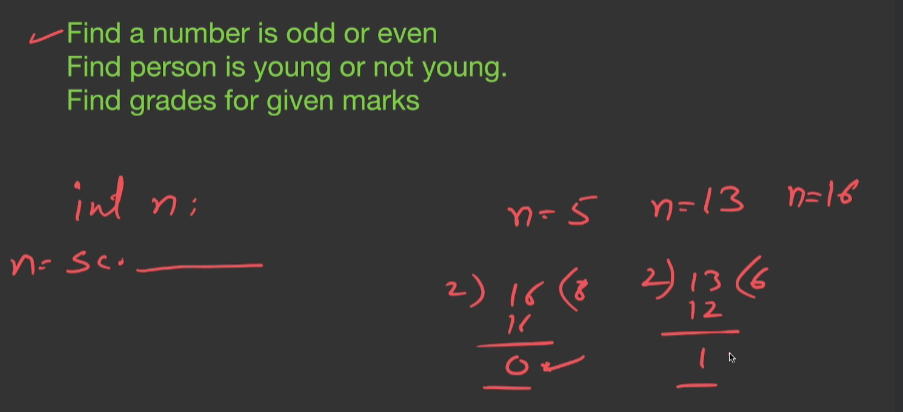 Find a number is odd or even
Find person is young or not young.
Find grades for given marks
int n;
n= 5 n=13 n=16
n= sc.
2) 16 (8 2) 13 (6
16 12
0 1